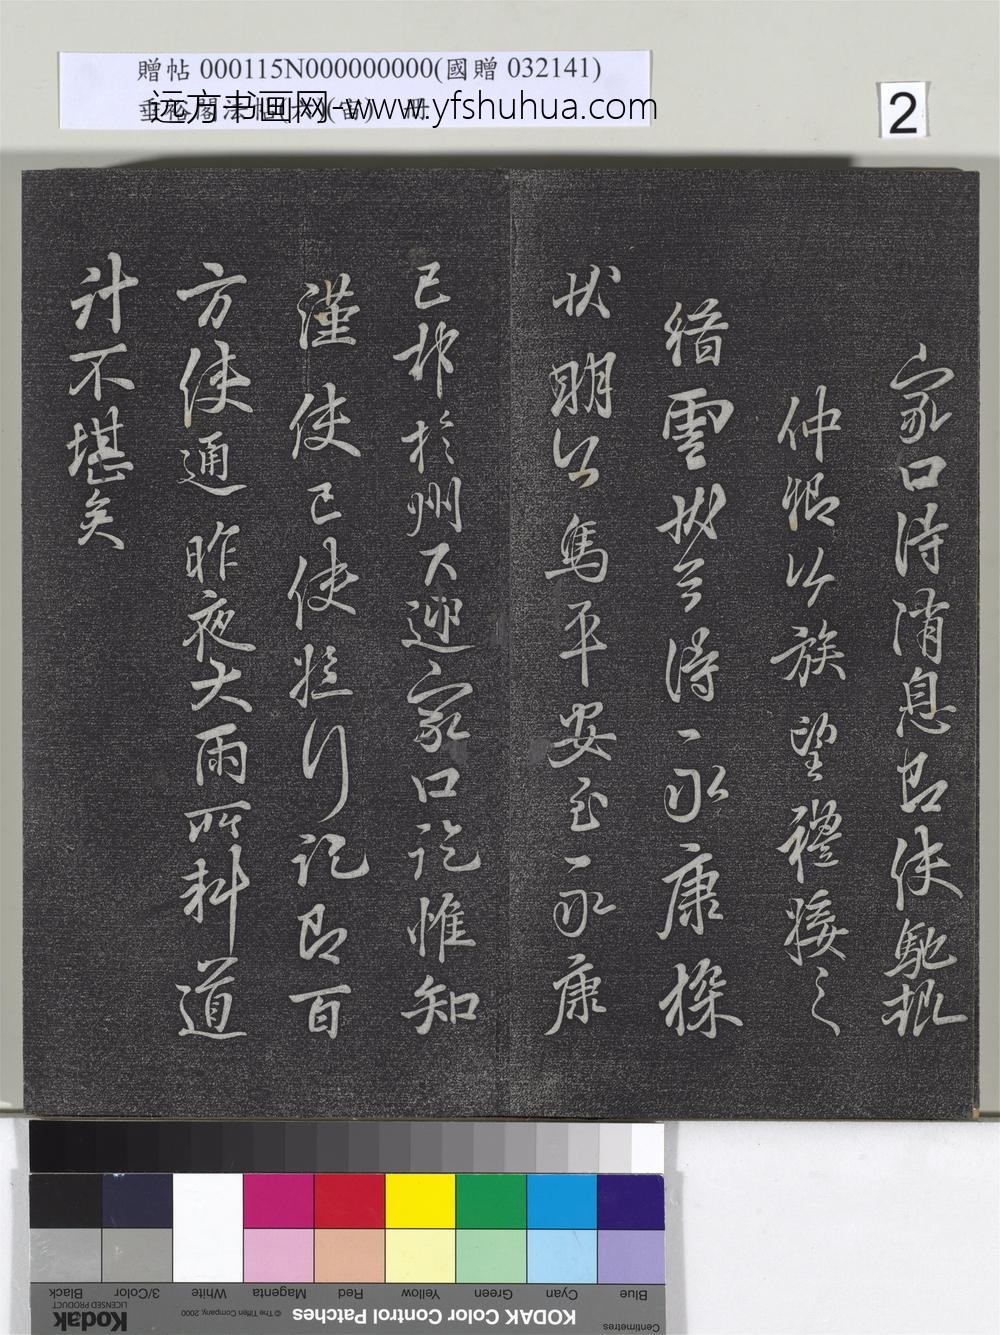 贈帖 000115N000000000(國贈 032141)
远方书画网-www.yfshuhua.com
2
家口待消息即使馳報
仲卿以族望禮接之
縉雲狀云得一永康探
狀明公馬平安至一永康
已邦於州下迎家口訖惟知
漢使已使行訖即百
方使通昨夜大雨所料道
計不堪矣
Centimetres
Blue
Cyan
Green
Yellow
Red
Magenta
White
3/Color
Black
KODAK Color Control Patches
© The Tiffen Company, 2000
Kodak
LICENSED PRODUCT